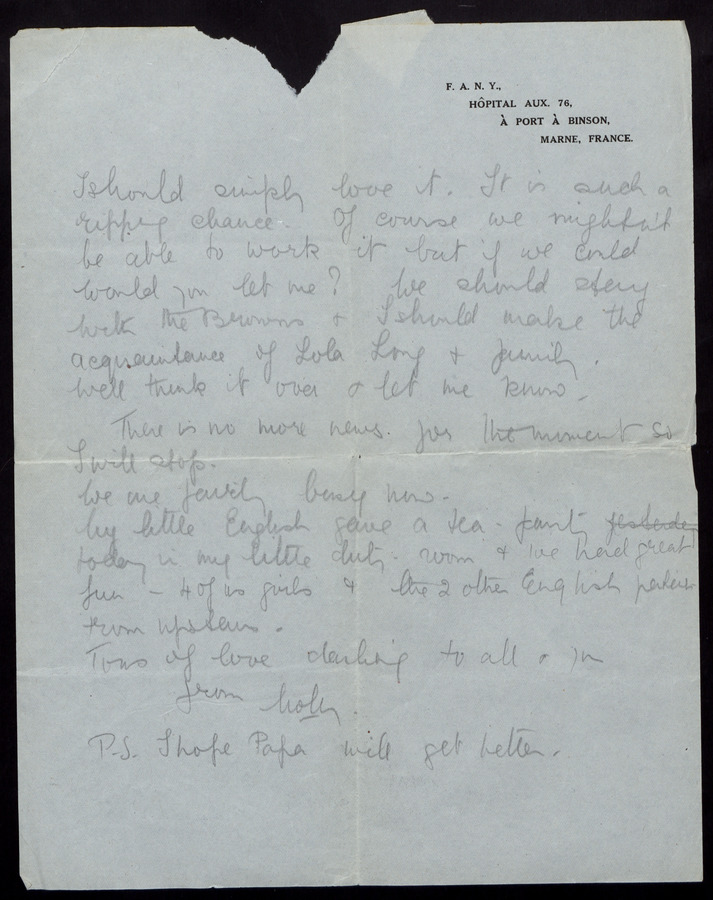 F. A. N. Y.,
HÔPITAL AUX. 76,
À PORT À BINSON,
MARNE, FRANCE.
I should simply love it. It is such a
ripping chance. Of course we mightn't
be able to work it but if we could
would you let me? We should stay
with the Browns & I should make the
acquaintance of Lola Long & family.
Well think it over & let me know.
There is no more news for the moment so
I will stop.
We are fairly busy now.
My little English gave a tea-party yesterday
today in my little duty-room & we had great
fun - 4 of us girls & the 2 other English
from upstairs.
Tons of love darling to all & you
from Molly.
P.S. I hope Papa will get better.